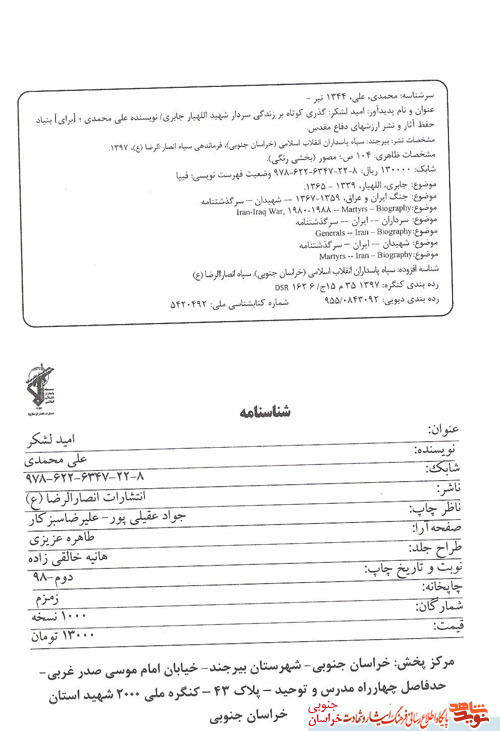 سرشناسه: محمدی، علی، ۱۳۴۴ تیر -
عنوان و نام پدیدآور: امید لشکر: گذری کوتاه بر زندگی سردار شهید اللهیار جابری/ نویسنده علی محمدی ؛ [برای] بنیاد
حفظ آثار و نشر ارزشهای دفاع مقدس.
مشخصات نشر: بیرجند: سپاه پاسداران انقلاب اسلامی (خراسان جنوبی)، فرماندهی سپاه انصار الرضا (ع)، ۱۳۹۷.
مشخصات ظاهری: ۱۰۴ ص: مصور (بخشی رنگی).
شابک: ۱۳۰۰۰۰ ریال: ۸-۲۲-۶۳۴۷-۶۲۲-۹۷۸ وضعیت فهرست نویسی: فیپا
موضوع: جابری، اللهیار، ۱۳۳۹ - ۱۳۶۵.
موضوع: جنگ ایران و عراق، ۱۳۵۹-۱۳۶۷ -- شهیدان -- سرگذشتنامه
موضوع: Iran-Iraq War, ۱۹۸۰-۱۹۸۸ -- Martyrs -- Biography
موضوع: سرداران -- ایران -- سرگذشتنامه
موضوع: Generals -- Iran -- Biography
موضوع: شهیدان -- ایران -- سرگذشتنامه
موضوع: Martyrs -- Iran -- Biography
شناسه افزوده: سپاه پاسداران انقلاب اسلامی (خراسان جنوبی). سپاه انصارالرضا (ع)
رده بندی کنگره: ۱۳۹۷ ۳۵ م ۱۵ج/ ۶ ۱۶۲ DSR
رده بندی دیویی: ۹۵۵/۰۸۴۳۰۹۲ شماره کتابشناسی ملی: ۵۴۲۰۴۹۲
شناسنامه
عنوان: امید لشکر
نویسنده: علی محمدی
شابک: ۸-۲۲-۶۳۴۷-۶۲۲-۹۷۸
ناشر: انتشارات انصارالرضا (ع)
ناظر چاپ: جواد عقیلی پور- علیرضا سبزکار
صفحه آرا: طاهره عزیزی
طراح جلد: هانیه خالقی زاده
نوبت و تاریخ چاپ: دوم-۹۸
چاپخانه: زمزم
شمارگان: ۱۰۰۰ نسخه
قیمت: ۱۳۰۰۰ تومان
مرکز پخش: خراسان جنوبی- شهرستان بیرجند- خیابان امام موسی صدر غربی-
حدفاصل چهارراه مدرس و توحید - پلاک ۴۳ - کنگره ملی ۲۰۰۰ شهید استان
خراسان جنوبی
نوید شاهد
پایگاه اطلاع رسانی فرهنگ ایثار و شهادت
خراسان جنوبی